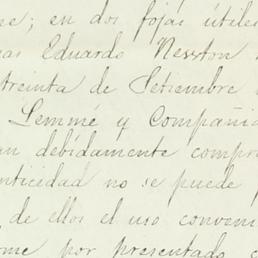 ne; en dos fojas útiles
as Eduardo Nesston
treinta de Setiembre
Lemmé y Compañia
an debidamente compro
enticidad no se puede
de ellos el uso conveni
ome por presentado